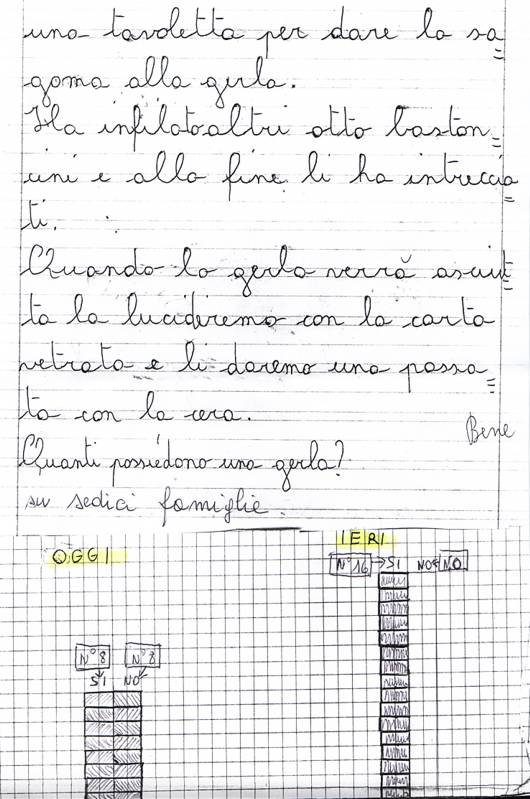 una tavoletta per dare la sa=
goma alla gerla.
Ha infilato altri otto baston=
cini e alla fine li ha intreccia=
ti.
Quando la gerla verrà asciut=
ta la lucideremo con la carta
vetrata e li daremo una passa=
ta con la cera.
Bene
Quanti possiedono una gerla?
su sedici famiglie.
OGGI
IERI
N° 16 → SI NO NO
N° 8 N° 8
SI NO